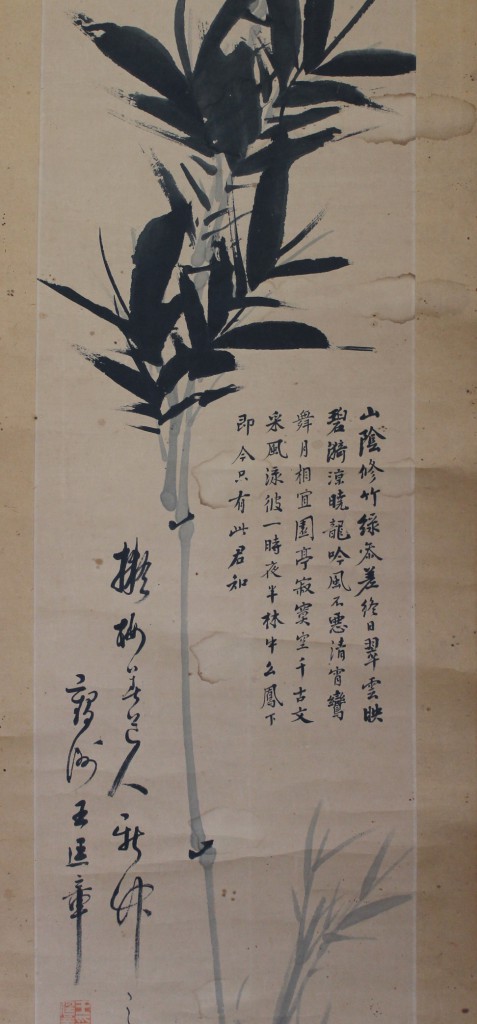 山陰修竹綠參差終日翠雲映
碧漪涼曉龍吟風不惡清宵鸞
舞月相宜園亭寂寞空千古文
采風流彼一時夜半林中么鳳下
即今只有此君知
擬梅華道人
王匡章